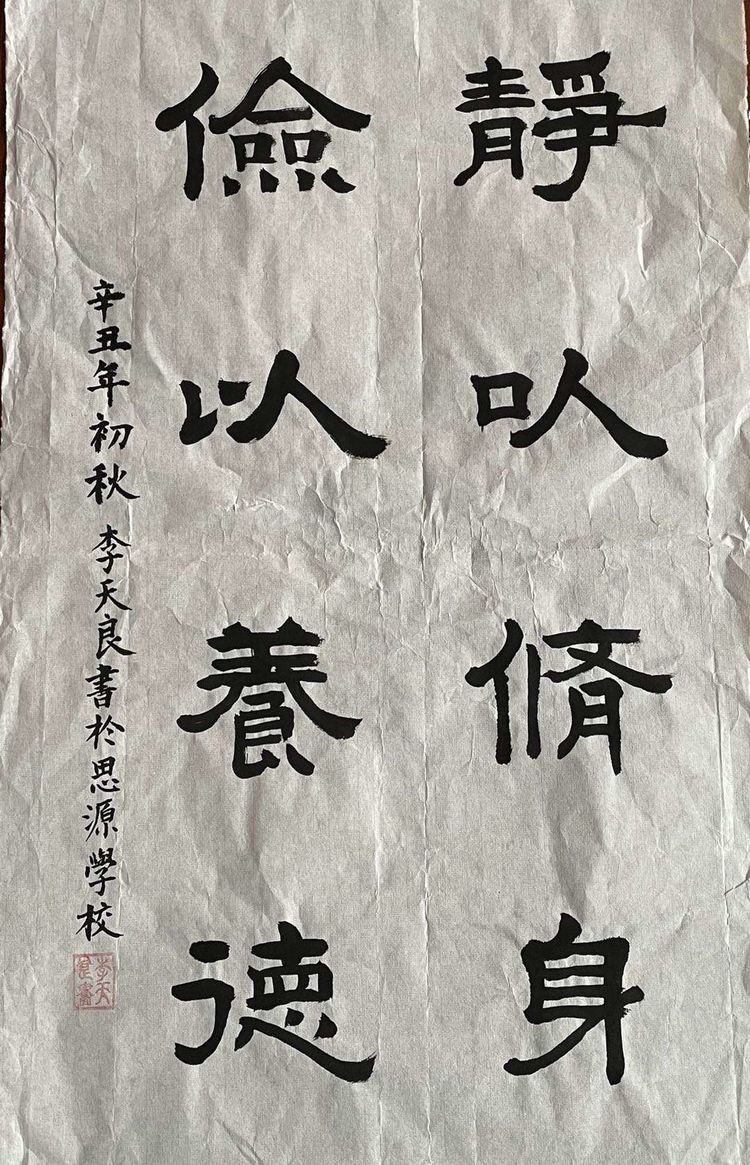 靜㕥脩身
儉以養德
辛丑年初秋 李天良書於思源學校
李天良書